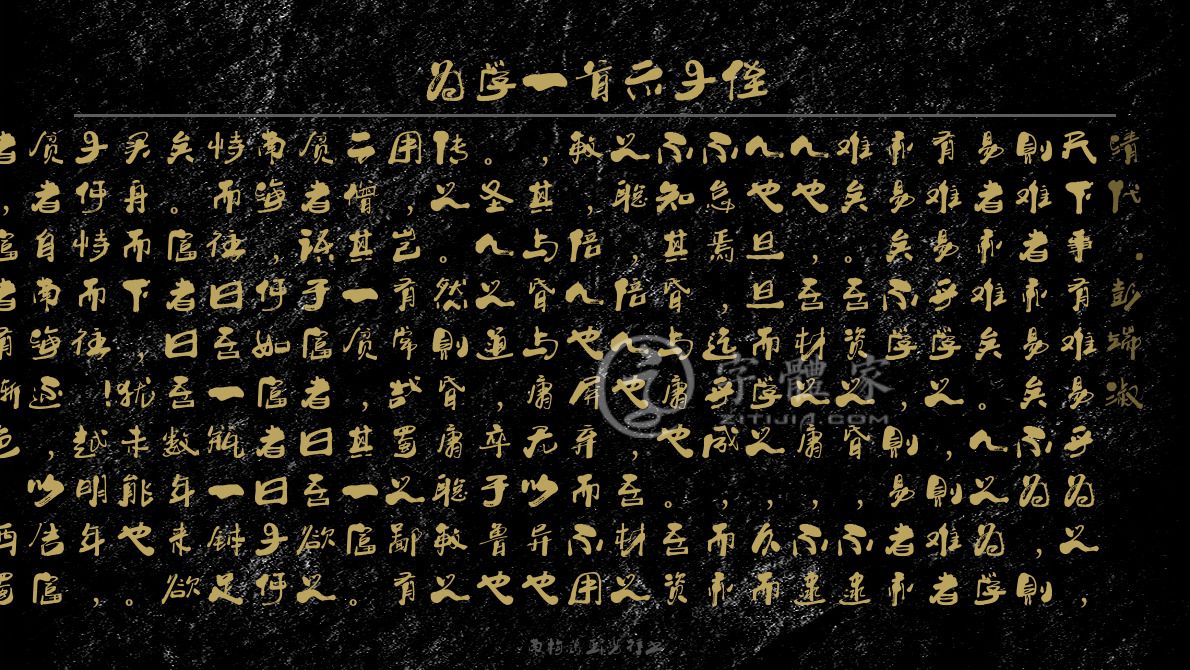 为学一首示子侄
清代.彭端淑
天下事有难易乎为之，
則难者亦易矣不为，則
易者亦难矣。人之为学
有难易乎学之，，难者
亦易矣。不学之則者亦
难矣。吾资之昏，不逮
人也，吾材之庸，不逮
人也旦旦而学之，久而
不怠焉，迄乎成，而亦
不知其昏与庸也。吾资
之聪，倍人也，吾材之
敏，倍人也屏弃而不用
，其与昏与庸无以异也
。圣人之道，卒于鲁也
传之。然常昏庸聪敏之
用，岂有則哉蜀之鄙有
二僧其一贫，其一富。
贫者语于富者曰吾欲之
南海，何如富者曰子何
恃而往曰吾一瓶一钵足
矣。富者曰，吾数年来欲
买舟而下，犹未能也。
子何恃而往！越明年，
贫者自南海还，以告富
者，富者有惭色，西蜀
字體家
ZITIJIA.COM